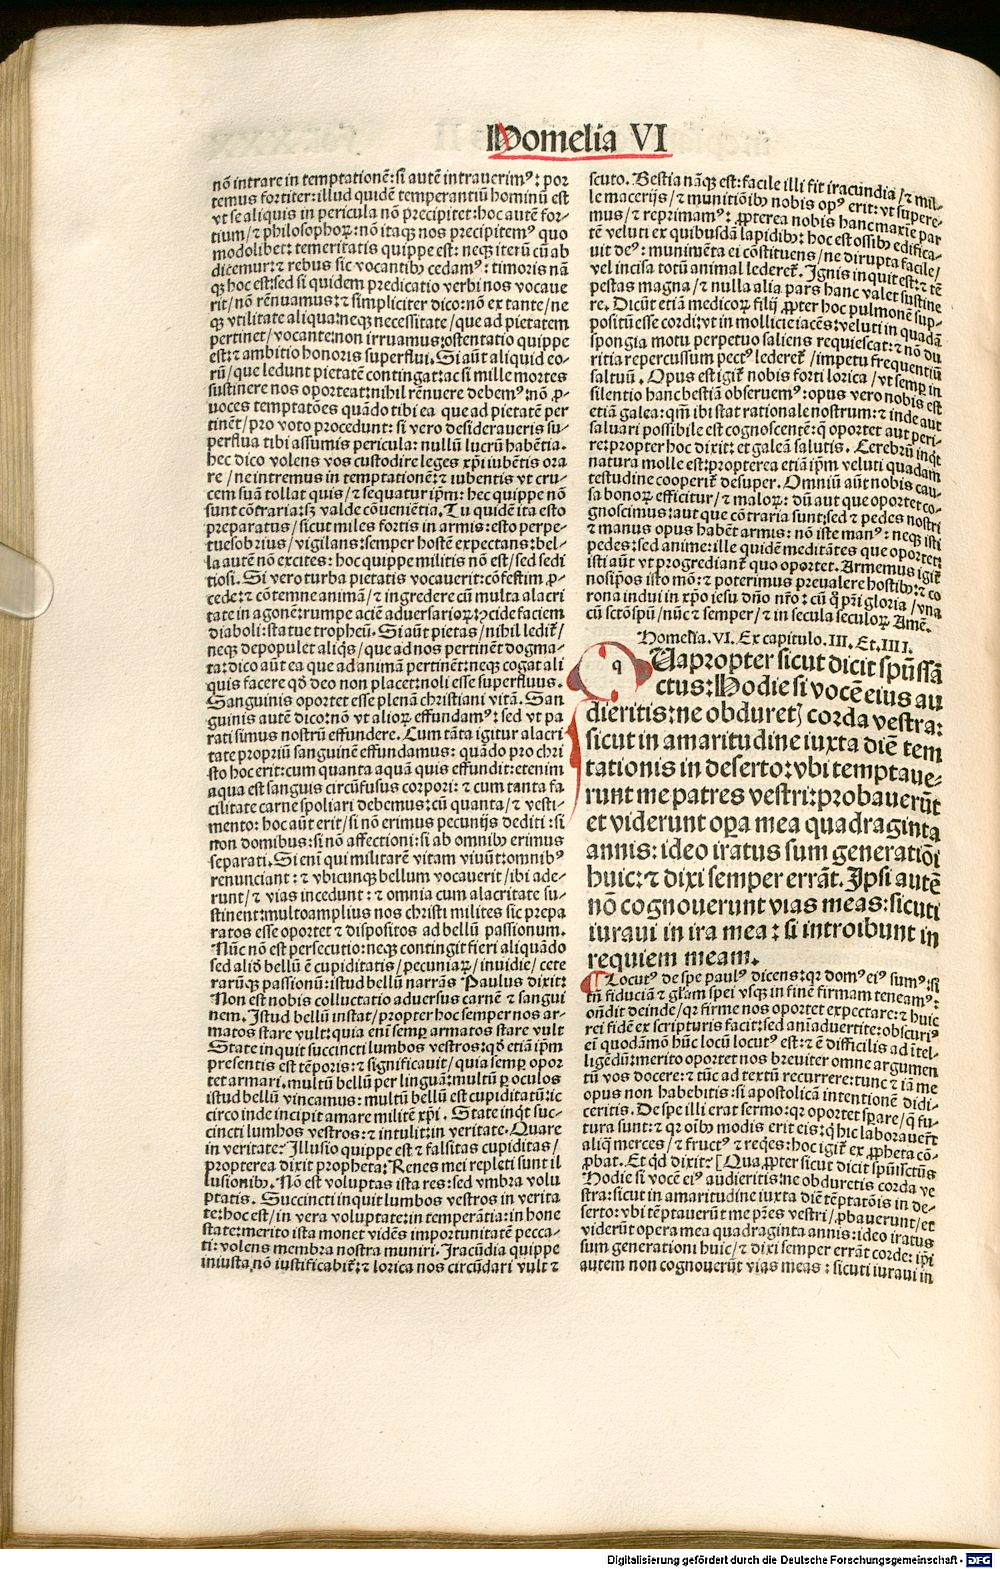 Homelia VI
nō intrare in temptationē: si autē intrauerimꝰ: por
temus fortiter: illud quidē temperantiū hominū est
vt se aliquis in pericula nō precipitet: hoc autē for⸗
tium/⁊ philosophoꝝ: nō itaqꝫ nos precipitemꝰ quo
modolibet: temeritatis quippe est: neqꝫ iterū cū ab
dicemur: ⁊ rebus sic vocantibꝰ cedamꝰ: timoris nā
qꝫ hoc est: sed si quidem predicatio verbi nos vocaue
rit/nō rēnuamus: ⁊ simpliciter dico: nō ex tante/ne
qꝫ vtilitate aliqua: neqꝫ necessitate/que ad pietatem
pertinet/vocante: non irruamus: ostentatio quippe
est: ⁊ ambitio honoris superflui. Si aūt aliquid eo⸗
rū/que ledunt pietatē contingat: ac si mille mortes
sustinere nos oporteat: nihil rēnuere debemꝰ: nō ꝓ⸗
uoces temptatōes quādo tibi ea que ad pietatē per
tinēt/pro voto procedunt: si vero desideraueris su⸗
perflua tibi assumis pericula: nullū lucrū habētia.
hec dico volens vos custodire leges xp̄i iubētis ora
re/ne intremus in temptationē: ⁊ iubentis vt cru⸗
cem suā tollat quis/⁊ sequatur ip̄m: hec quippe nō
sunt cōtraria: sꝫ valde cōueniētia. Tu quidē ita esto
preparatus/sicut miles fortis in armis: esto perpe⸗
tue sobrius/vigilans: semper hostē expectans: bel⸗
la autē nō excites: hoc quippe militis nō est/sed sedi
tiosi. Si vero turba pietatis vocauerit: cōfestim ꝓ⸗
cede: ⁊ cōtemne animā/⁊ ingredere cū multa alacri
tate in agonē: rumpe aciē aduersarioꝝ: ꝯcide faciem
diaboli: statue tropheū. Si aūt pietas/nihil ledit᷑/
neqꝫ depopulet aliq̄s/que ad nos pertinēt dogma⸗
ta: dico aūt ea que ad animā pertinēt: neqꝫ cogat ali
quis facere qd̄ deo non placet: noli esse superfluus.
Sanguinis oportet esse plenā christiani vitā. San
guinis autē dico: nō vt alioꝝ effundamꝰ: sed vt pa
rati simus nostrū effundere. Cum tāta igitur alacri
tate propriū sanguinē effundamus: quādo pro chri
sto hoc erit: cum quanta aquā quis effundit: etenim
aqua est sanguis circūfusus corpori: ⁊ cum tanta fa
cilitate carne spoliari debemus: cū quanta/⁊ vesti⸗
mento: hoc aūt erit/si nō erimus pecunijs dediti: si
non domibus: si nō affectioni: si ab omnibꝰ erimus
separati. Si enī qui militarē vitam viuūt: omnibꝰ
renunciant: ⁊ vbicunqꝫ bellum vocauerit/ibi ade⸗
runt/⁊ vias incedunt: ⁊ omnia cum alacritate su⸗
stinent: multoamplius nos christi milites sic prepa
ratos esse oportet ⁊ dispositos ad bellū passionum.
Nūc nō est persecutio: neqꝫ contingit fieri aliquādo
sed alid̄ bellū ē cupiditatis/pecuniaꝝ/inuidie/cete
rarūqꝫ passionū: istud bellū narrās Paulus dixit:
Non est nobis colluctatio aduersus carnē ⁊ sangui
nem. Istud bellū instat/propter hoc semper nos ar⸗
matos stare vult: quia enī semꝑ armatos stare vult
State inquit succincti lumbos vestros: qd̄ etiā ip̄m
presentis est tēporis: ⁊ significauit/quia semꝑ opor
tet armari. multū bellū per linguā: multū ꝑ oculos
istud bellū vincamus: multū bellū est cupiditatū: ic
circo inde incipit amare militē xp̄i. State inqͥt suc⸗
cincti lumbos vestros: ⁊ intulit: in veritate. Quare
in veritate: Illusio quippe est ⁊ falsitas cupiditas/
propterea dixit propheta: Renes mei repleti sunt il
lusionibꝰ. Nō est voluptas ista res: sed vmbra volu
ptatis. Succincti inquit lumbos vestros in verita
te: hoc est/in vera voluptate: in temperātia: in hone
state: merito ista monet vidēs importunitatē pecca⸗
ti: volens membra nostra muniri. Iracūdia quippe
iniusta nō iustificabit᷑: ⁊ lorica nos circūdari vult ⁊
scuto. Bestia nāqꝫ est: facile illi fit iracundia/⁊ mil⸗
le macerijs/⁊ munitiōibꝰ nobis opꝰ erit: vt supere⸗
mus/⁊ reprimamꝰ: ꝓpterea nobis hanc maxīe par
tē veluti ex quibusdā lapidibꝰ: hoc est ossibꝰ edifica⸗
uit deꝰ: munimēta ei cōstituens/ne dirupta facile/
vel incisa totū animal lederet᷑. Ignis inquit est: ⁊ tē
pestas magna/⁊ nulla alia pars hanc valet sustine
re. Dicūt etiā medicoꝝ filij ꝓpter hoc pulmonē sup⸗
positū esse cordi: vt in mollicie iacēs: veluti in quadā
spongia motu perpetuo saliens requiescat: ⁊ nō du
ritia repercussum pectꝰ lederet᷑/impetu frequentiū
saltuū. Opus est igit᷑ nobis forti lorica/vt semꝑ in
silentio hanc bestiā obseruemꝰ: opus vero nobis est
etiā galea: qm̄ ibi stat rationale nostrum: ⁊ inde aut
saluari possibile est cognoscentē: q̄ oportet aut peri⸗
re: propter hoc dixit: et galeā salutis. Cerebrū inqͥt
natura molle est: propterea etiā ip̄m veluti quadam
testudine cooperit᷑ desuper. Omniū aūt nobis cau⸗
sa bonoꝝ efficitur/⁊ maloꝝ: dū aut que oportet co⸗
gnoscimus: aut que cōtraria sunt: sed ⁊ pedes nostri
⁊ manus opus habēt armis: nō iste manꝰ: neqꝫ isti
pedes: sed anime: ille quidē meditātes que oportet:
isti aūt vt progrediant᷑ quo oportet. Armemus igit᷑
nosip̄os isto mō: ⁊ poterimus preualere hostibꝰ: ⁊ co
rona indui in xp̄o iesu dn̄o nr̄o: cū q̄ pr̄i gloria/vna
cū sctōspū/nūc ⁊ semper/⁊ in secula seculoꝝ Amē.
Homelia. VI. Ex capitulo. III. Et. IIII.
QUapropter sicut dicit spūssā
ctus: Hodie si vocē eius au
dieritis: ne obduret̉ corda vestra:
sicut in amaritudine iuxta diē tem
tationis in deserto: vbi temptaue⸗
runt me patres vestri: probauerūt
et viderunt oꝑa mea quadraginta
annis: ideo iratus sum generatiōi
huic: ⁊ dixi semper errāt. Ipsi autē
nō cognouerunt vias meas: sicuti
iuraui in ira mea: si introibunt in
requiem meam.
Locutꝰ de spe paulꝰ dicens: qr domꝰ eiꝰ sumꝰ: si
tn̄ fiduciā ⁊ glīam spei vsqꝫ in finē firmam teneamꝰ:
oñdit deinde/qr firme nos oportet expectare: ⁊ huic
rei fidē ex scripturis facit: sed aīaduertite: obscuriꝰ
eī quodāmō hūc locū locutꝰ est: ⁊ ē difficilis ad ītel⸗
ligēdū: merito oportet nos breuiter omne argumen
tū vos docere: ⁊ tūc ad textū recurrere: tunc ⁊ iā me
opus non habebitis: si apostolicā intentionē didi⸗
ceritis. De spe illi erat sermo: qr oportet sꝑare/q̄ fu⸗
tura sunt: ⁊ qr oībꝰ modis erit eis: q̄ hic laborauer̄t
aliq̄ merces/⁊ fructꝰ ⁊ reqͥes: hoc igit᷑ ex ꝓpheta cō⸗
ꝓbat. Et qͥd dixit: [Qua ꝓpter sicut dicit spūsctūs
Hodie si vocē eiꝰ audieritis: ne obduretis corda ve
stra: sicut in amaritudine iuxta diē tēptatōis in de⸗
serto: vbi tēptauerūt me pr̄es vestri/ꝓbauerunt/et
viderūt opera mea quadraginta annis: ideo iratus
sum generationi huic/⁊ dixi semper errāt corde: ip̄i
autem non cognouerūt vias meas: sicuti iuraui in
Digitalisierung gefördert durch die Deutsche Forschungsgemeinschaft - DFG